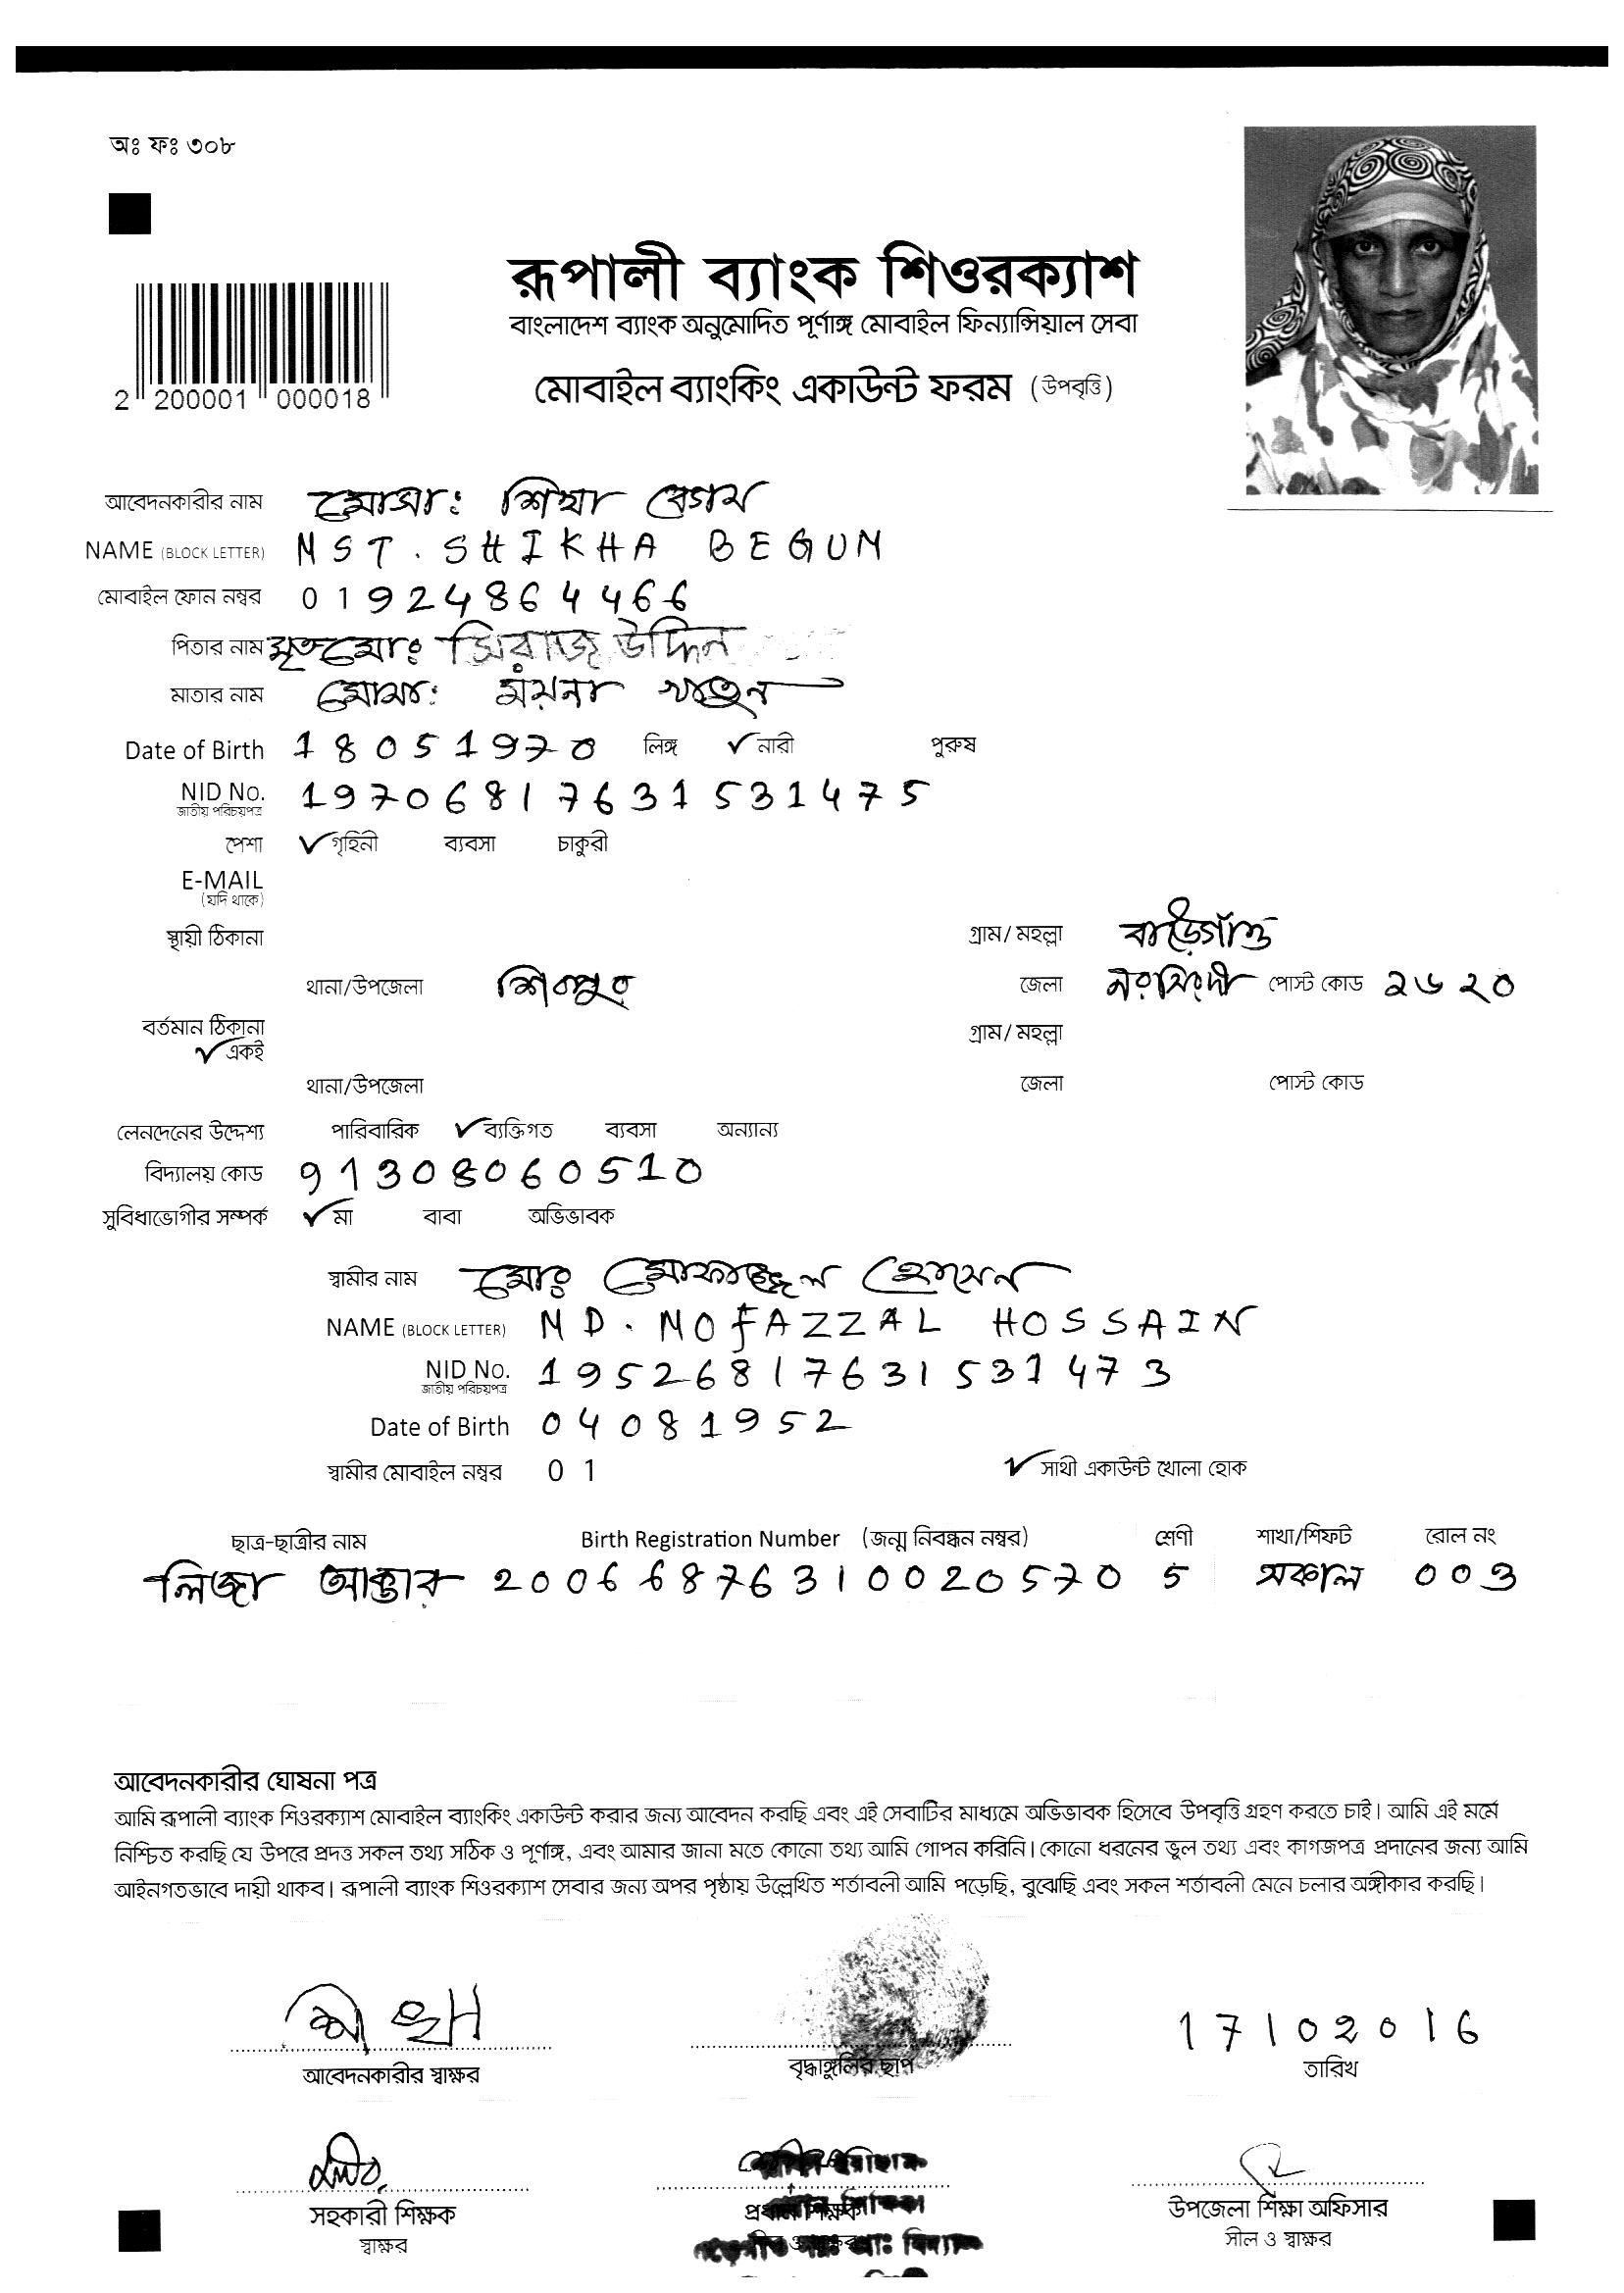 অঃ ফঃ ৩০৮
রূপালী ব্যাংক শিওরক্যাশ
বাংলাদেশ ব্যাংক অনুমোদিত পূর্ণাঙ্গ মোবাইল ফিন্যান্সিয়াল সেবা
মোবাইল ব্যাংকিং একাউন্ট ফরম (উপবৃত্তি)
2 200001 000018
আবেদনকারীর নাম মোসা: শিখা বেগম
NAME (BLOCK LETTER) MST. SHIKHA BEGUM
মোবাইল ফোন নম্বর 01924864466
পিতার নাম মৃত মোঃ সিরাজ উদ্দিন
মাতার নাম মোসা: ময়না খাতুন
Date of Birth 18051970 লিঙ্গ ✓ নারী পুরুষ
NID No. 19706817631531475
জাতীয় পরিচয়পত্র
পেশা ✓ গৃহিনী ব্যবসা চাকুরী
E-MAIL
(যদি থাকে)
স্থায়ী ঠিকানা গ্রাম/ মহল্লা
থানা/উপজেলা শিবপুর জেলা নরসিংদী পোস্ট কোড ২৬২০
বর্তমান ঠিকানা গ্রাম/ মহল্লা
✓ একই
থানা/উপজেলা জেলা পোস্ট কোড
লেনদেনের উদ্দেশ্য পারিবারিক ✓ ব্যক্তিগত ব্যবসা অন্যান্য
বিদ্যালয় কোড 91308060510
সুবিধাভোগীর সম্পর্ক ✓ মা বাবা অভিভাবক
স্বামীর নাম মোঃ মোফাজ্জল হোসেন
NAME (BLOCK LETTER) MD. MOFAZZAL HOSSAIN
NID No. 19526817631531473
জাতীয় পরিচয়পত্র
Date of Birth 04081952
স্বামীর মোবাইল নম্বর 01 ✓ সাথী একাউন্ট খোলা হোক
ছাত্র-ছাত্রীর নাম Birth Registration Number (জন্ম নিবন্ধন নম্বর) শ্রেণী শাখা/শিফট রোল নং
লিজা আক্তার 20066876310020570 5 সকাল 003
আবেদনকারীর ঘোষনা পত্র
আমি রূপালী ব্যাংক শিওরক্যাশ মোবাইল ব্যাংকিং একাউন্ট করার জন্য আবেদন করছি এবং এই সেবাটির মাধ্যমে অভিভাবক হিসেবে উপবৃত্তি গ্রহণ করতে চাই। আমি এই মর্মে
নিশ্চিত করছি যে উপরে প্রদত্ত সকল তথ্য সঠিক ও পূর্ণাঙ্গ, এবং আমার জানা মতে কোনো তথ্য আমি গোপন করিনি। কোনো ধরনের ভুল তথ্য এবং কাগজপত্র প্রদানের জন্য আমি
আইনগতভাবে দায়ী থাকব। রূপালী ব্যাংক শিওরক্যাশ সেবার জন্য অপর পৃষ্ঠায় উল্লেখিত শর্তাবলী আমি পড়েছি, বুঝেছি এবং সকল শর্তাবলী মেনে চলার অঙ্গীকার করছি।
শিখা 17102016
আবেদনকারীর স্বাক্ষর বৃদ্ধাঙ্গুলির ছাপ তারিখ
সহকারী শিক্ষক প্রধান শিক্ষক উপজেলা শিক্ষা অফিসার
স্বাক্ষর সীল ও স্বাক্ষর সীল ও স্বাক্ষর